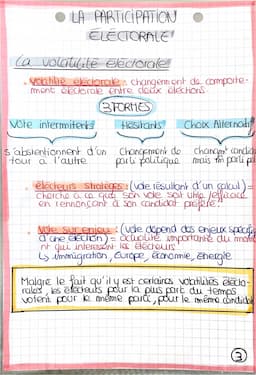 LA PARTICIPATION
ÉLECTORALE
La volatilité électorale
• volatilité électorale : changement de comporte-
ment électorale entre deux élections
3 FORMES
Vote intermittent Hésitants Choix Alternatif
s'abstentionnent d'un Changement de Changmt candida
tour à l'autre parti politique mais tjr parti po
• électeurs stratèges : (vote résultant d'un calcul) =
cherche à ce que son vote soit utile /efficace
en renonçant à son candidat préféré.
• Vote sur enjeu : (vote dépend des enjeux spécifiq
d'une élection) = actualité importante du mome
nt qui interessent les électeurs
↳ immigration, Europe, économie, énergie
Malgré le fait qu'il y est certaines volatilités électo-
rales, les électeurs pour la plus part du temps
votent pour le même parti, pour le même candidat
3